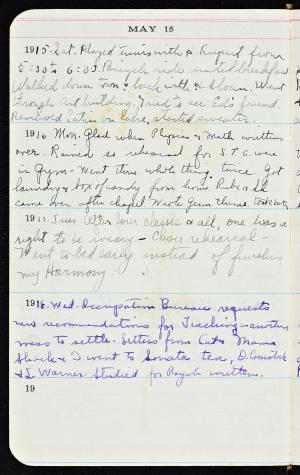 MAY 15
1915. Sat. Played Tennis with & Rupert from
5:30 to 6:30. Bicycle ride until breakfast
Walked down town & back with & Sloan. Went
through Art building. Tried to see Ed's friend
Received Satin , started sweater.
1916 Mon. Glad when Physics & Math writtens
over. Rained so rehearsal for S.T.C. were
in Gym - Went thru whole thing twice. Got
laundry & box of candy from home. Rube &
came over after chapel. Wrote Germ theme.
1917 Tues. After four classes & all, one has a
right to be weary - Choir rehearsal -
Went to bed early instead of finishing
my Harmony.
1918. Wed. Occupation Bureau requests
new recommendations for Teaching - another
mess to settle. Letters from Cat & Mama
Shack & I went to Sonata tea, D. Comstock
& S. Warner. Studied for Psych written.
19